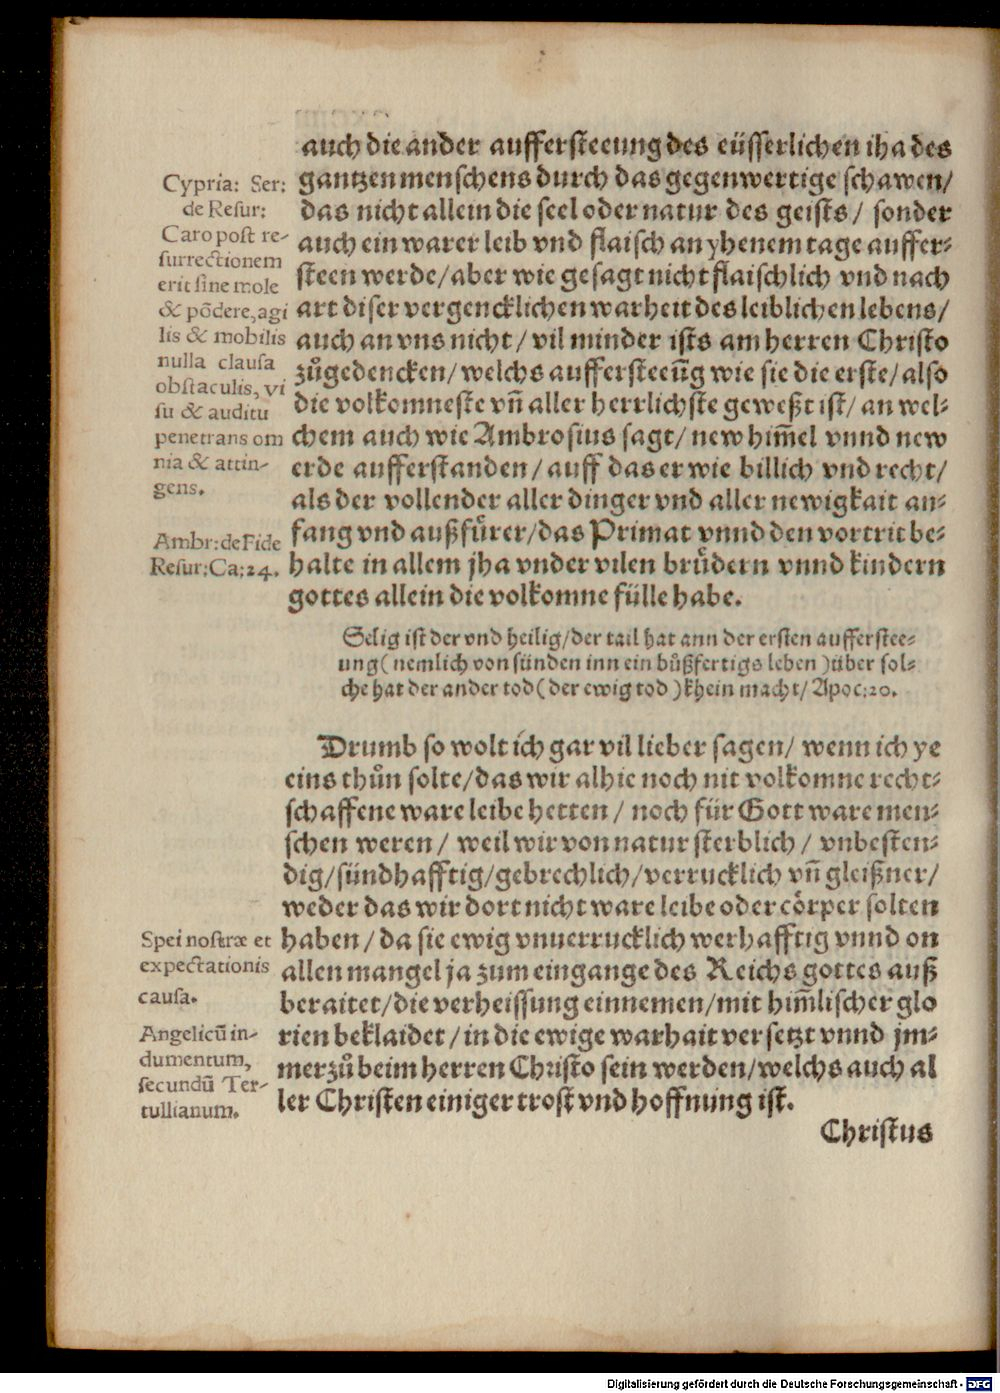 auch die ander aufferſteeung des eüſſerlichen iha des
gantzen menſchens durch das gegenwertige ſchawen/
das nicht allein die ſeel oder natur des geiſts/ ſonder
auch ein warer leib vnd flaiſch an yhenem tage auffer⸗
ſteen werde/aber wie geſagt nicht flaiſchlich vnd nach
art diſer vergencklichen warheit des leiblichen lebens/
auch an vns nicht/ vil minder iſts am herren Chriſto
zůgedencken/welchs aufferſteeūg wie ſie die erſte/alſo
die volkomneſte vn̄ aller herrlichſte geweßt iſt/ an wel⸗
chem auch wie Ambroſius ſagt/ new him̄el vnnd new
erde aufferſtanden/auff das er wie billich vnd recht/
als der vollender aller dinger vnd aller newigkait an⸗
fang vnd außfuͤrer/das Primat vnnd den vortrit be⸗
halte in allem jha vnder vilen bruͤdern vnnd kindern
gottes allein die volkomne fülle habe.
Cypria: Ser:
de Reſur:
Caro poſt re-
ſurrectionem
erit ſine mole
& põdere, agi
lis & mobilis
nulla clauſa
obſtaculis, vi
ſu & auditu
penetrans om
nia & attin-
gens.
Ambr: de Fide
Reſur: Ca: 24.
Selig iſt der vnd heilig/der tail hat ann der erſten aufferſtee⸗
ung( nemlich von ſünden inn ein buͤßfertigs leben )über ſol⸗
che hat der ander tod( der ewig tod )khein macht/ Apoc:20.
Drumb ſo wolt ich gar vil lieber ſagen/ wenn ich ye
eins thůn ſolte/das wir alhie noch nit volkomne recht⸗
ſchaffene ware leibe hetten/ noch für Gott ware men⸗
ſchen weren/ weil wir von natur ſterblich/ vnbeſten⸗
dig/ſündhafftig/gebrechlich/verrucklich vn̄ gleißner/
weder das wir dort nicht ware leibe oder coͤrper ſolten
haben/da ſie ewig vnuerrucklich werhafftig vnnd on
allen mangel ja zum eingange des Reichs gottes auß
beraitet/die verheiſſung einnemen/mit him̄liſcher glo
rien beklaidet/in die ewige warhait verſetzt vnnd jm⸗
merzů beim herren Chriſto ſein werden/welchs auch al
ler Chriſten einiger troſt vnd hoffnung iſt.
Spei noſtræ et
expectationis
cauſa.
Angelicū in-
dumentum,
ſecundū Ter-
tullianum.
Chriſtus
Digitalisierung gefördert durch die Deutsche Forschungsgemeinschaft - DFG